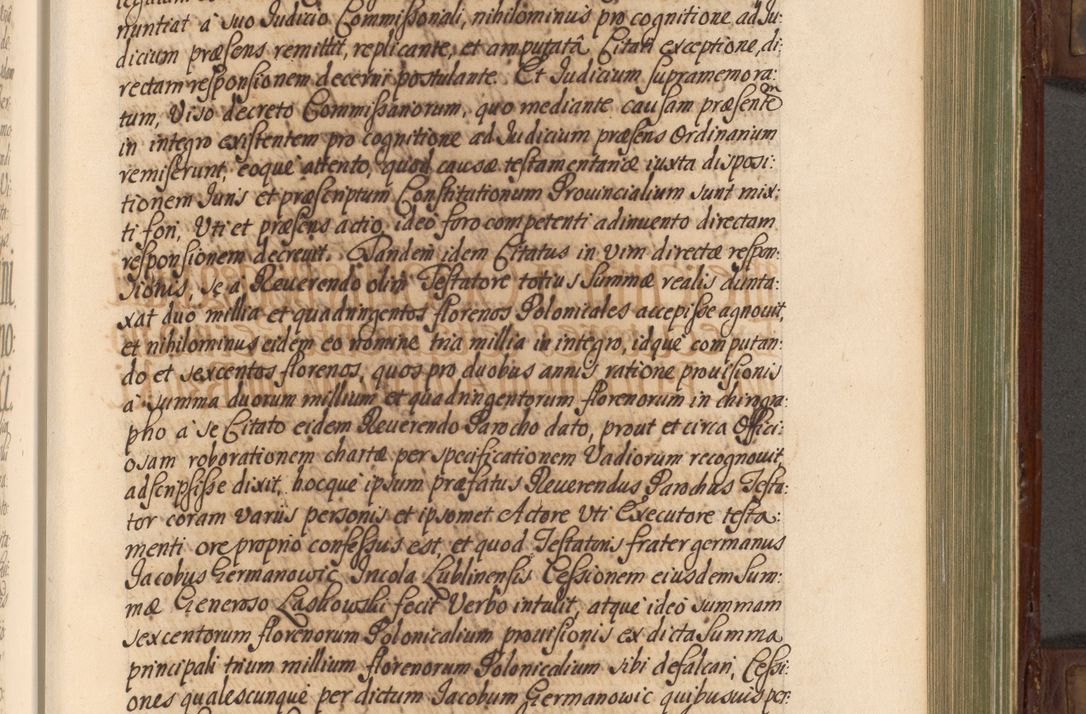 nuntiat a suo Judicio Commissoriali, nihilominus pro cognitione, ad Ju-
dicium præsens remittit, replicante, et amputatâ Citati exceptione, di-
rectam responsionem decerni postulante. Et Judicium supramemora-
tum, Viso decreto Commissariorum, quo mediante causam præsentem
in integro existentem pro cognitione ad Judicium præsens Ordinarium
remiserunt, eoque attento, quod causæ testamentariæ iuxta disposi-
tionem Juris et præscriptum Constitutionum Provincialium sunt mix-
ti fori, Uti et præsens actio, ideo foro competenti adinuento directam
responsionem decreuit. Tandem idem Citatus in vim directæ respon-
sionis, se a Reuerendo olim Testatore totius summæ realis dunta-
xat duo millia et quadringentos florenos Polonicales accepisse agnouit,
et nihilominus eidem eo nomine tria millia in integro, idque computan-
do et sexcentos florenos, quos pro duobus annis ratione prouisionis
a summa duorum millium et quadringentorum florenorum in chirogra-
pho a se Citato eidem Reuerendo Parocho dato, prout et circa Offici-
osam roborationem chartæ per specificationem Vadiorum recognouit,
adscripsisse dixit, hocque ipsum præfatus Reuerendus Parochus Testa-
tor coram varijs personis et ipsomet Actore Uti Executore testa-
menti ore proprio confessus est, et quod Testatoris frater germanus
Jacobus Germanowic, Incola Lublinensis Cessionem eiusdem sum-
mæ Generoso Laskowski fecit Verbo intulit, atque ideo summam
sexcentorum florenorum Polonicalium prouisionis ex dicta summa
principali trium millium florenorum Polonicalium sibi defalcari, Cessi-
ones qualescunque per dictum Jacobum Germanowic quibusuis per-